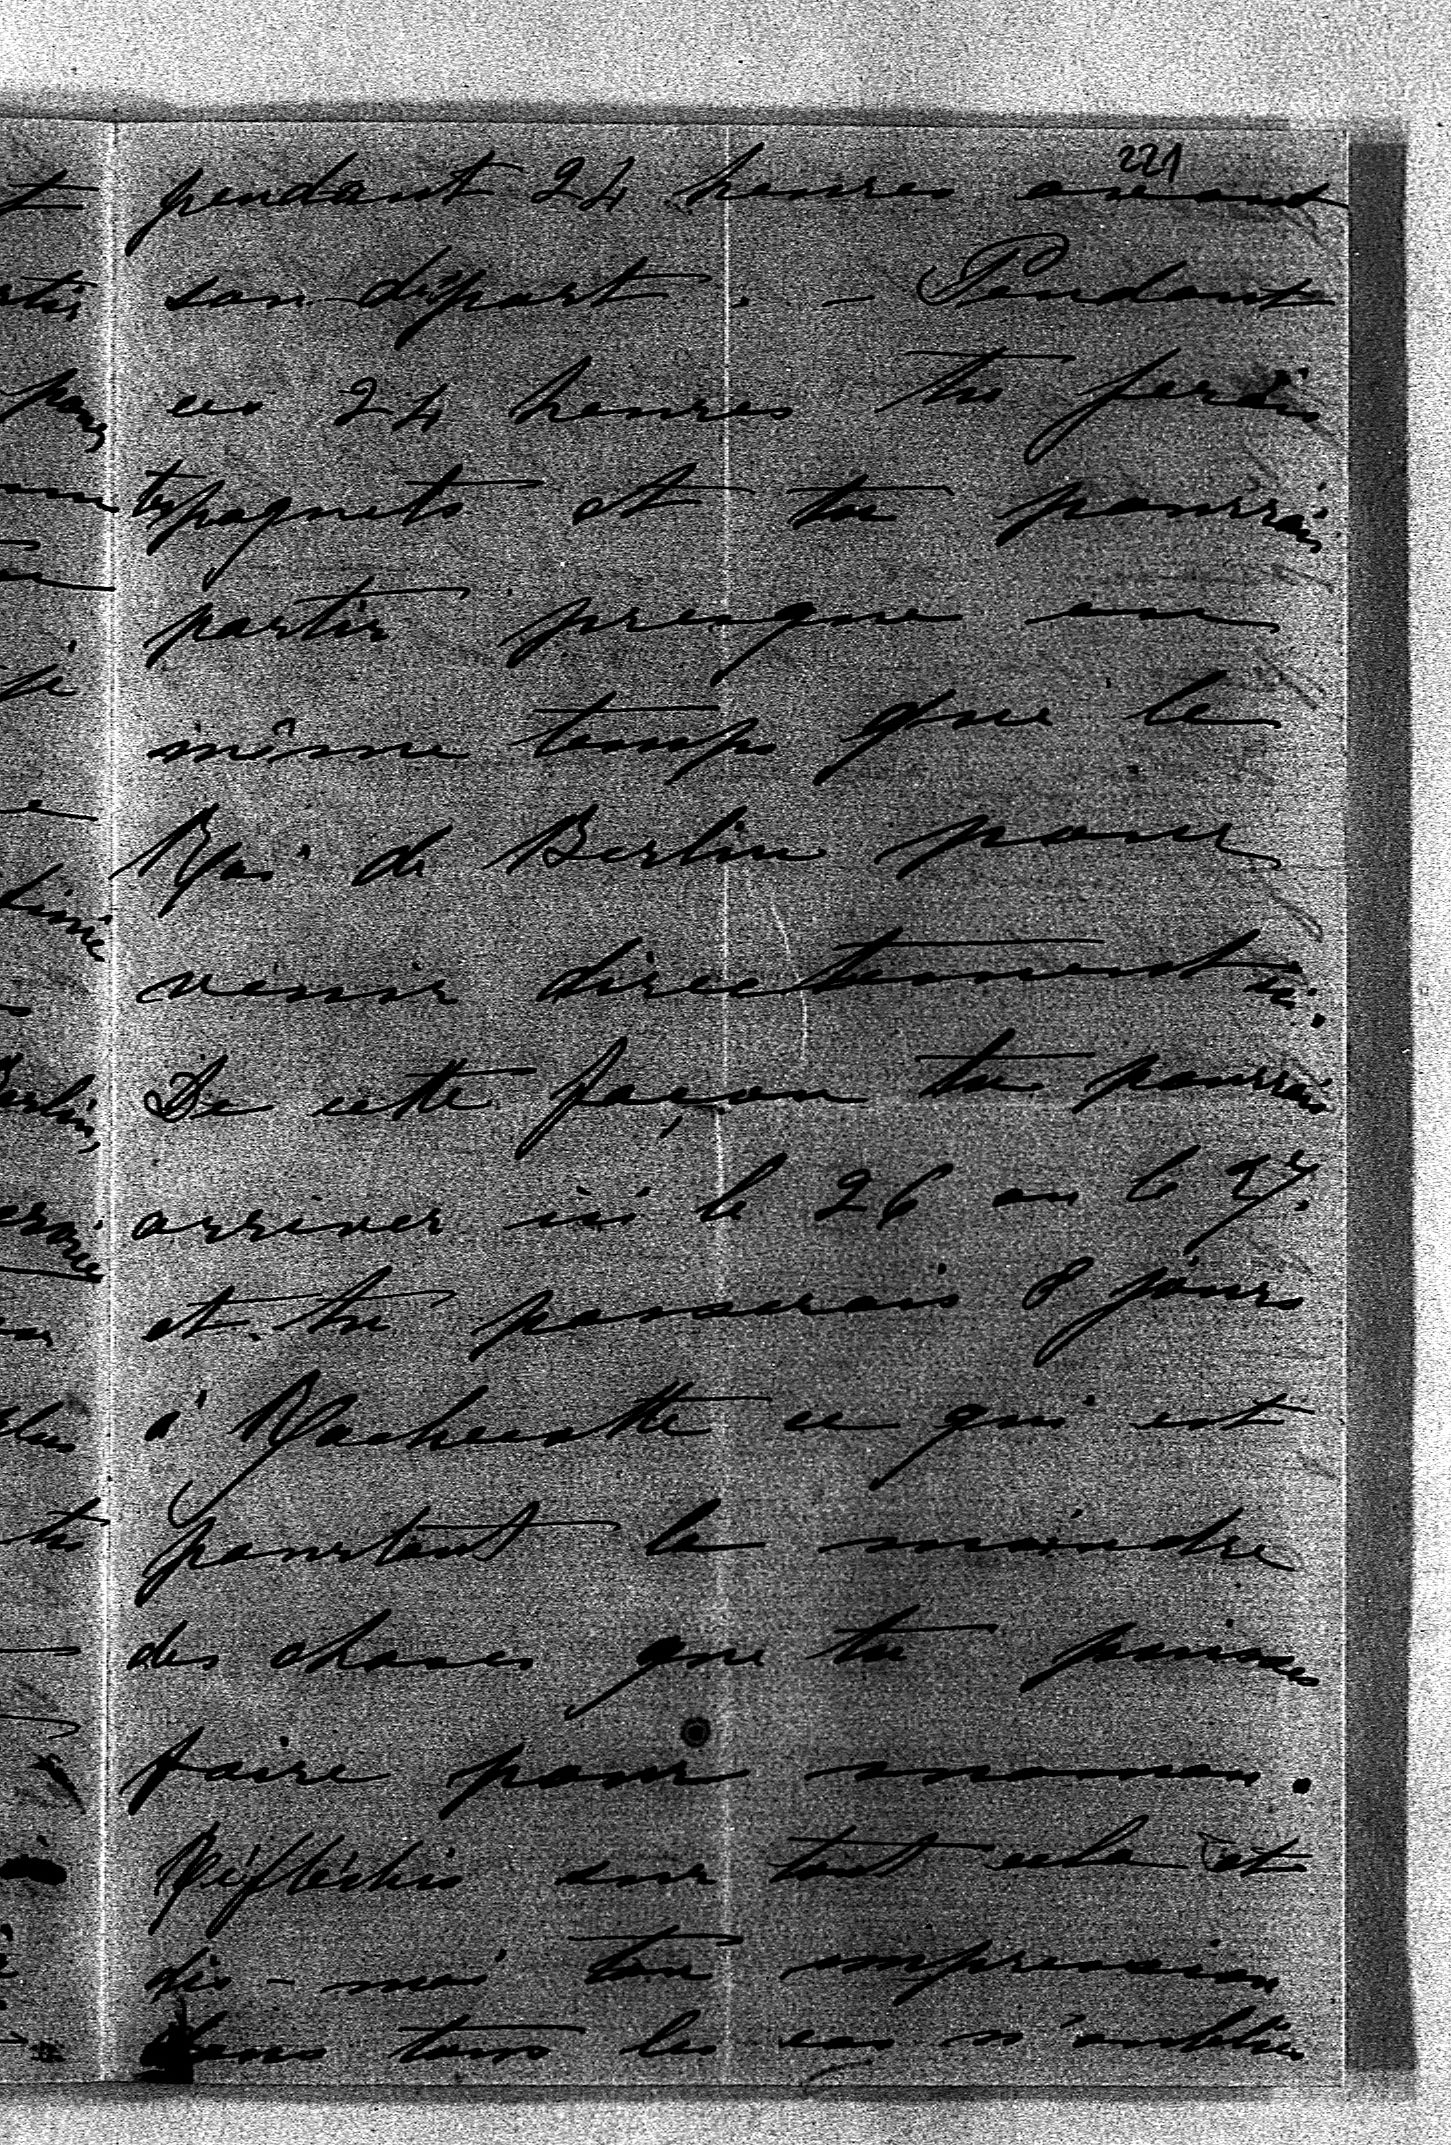 221
pendant 24 heures avant
son départ. - Pendant
ces 24 heures tu ferais
tes paquets et tu pourrais
partir presque en
même temps que le
Roi de Berlin pour
venir directement ici.
De cette façon tu pourrais
arriver ici le 26 ou le 27.
et tu passerais 8 jours
à
pourtant la moindre
des choses que tu puisses
faire pour maman.
Réfléchis sur tout cela et
dis-moi ton impression
Dans tous les cas n'oublie